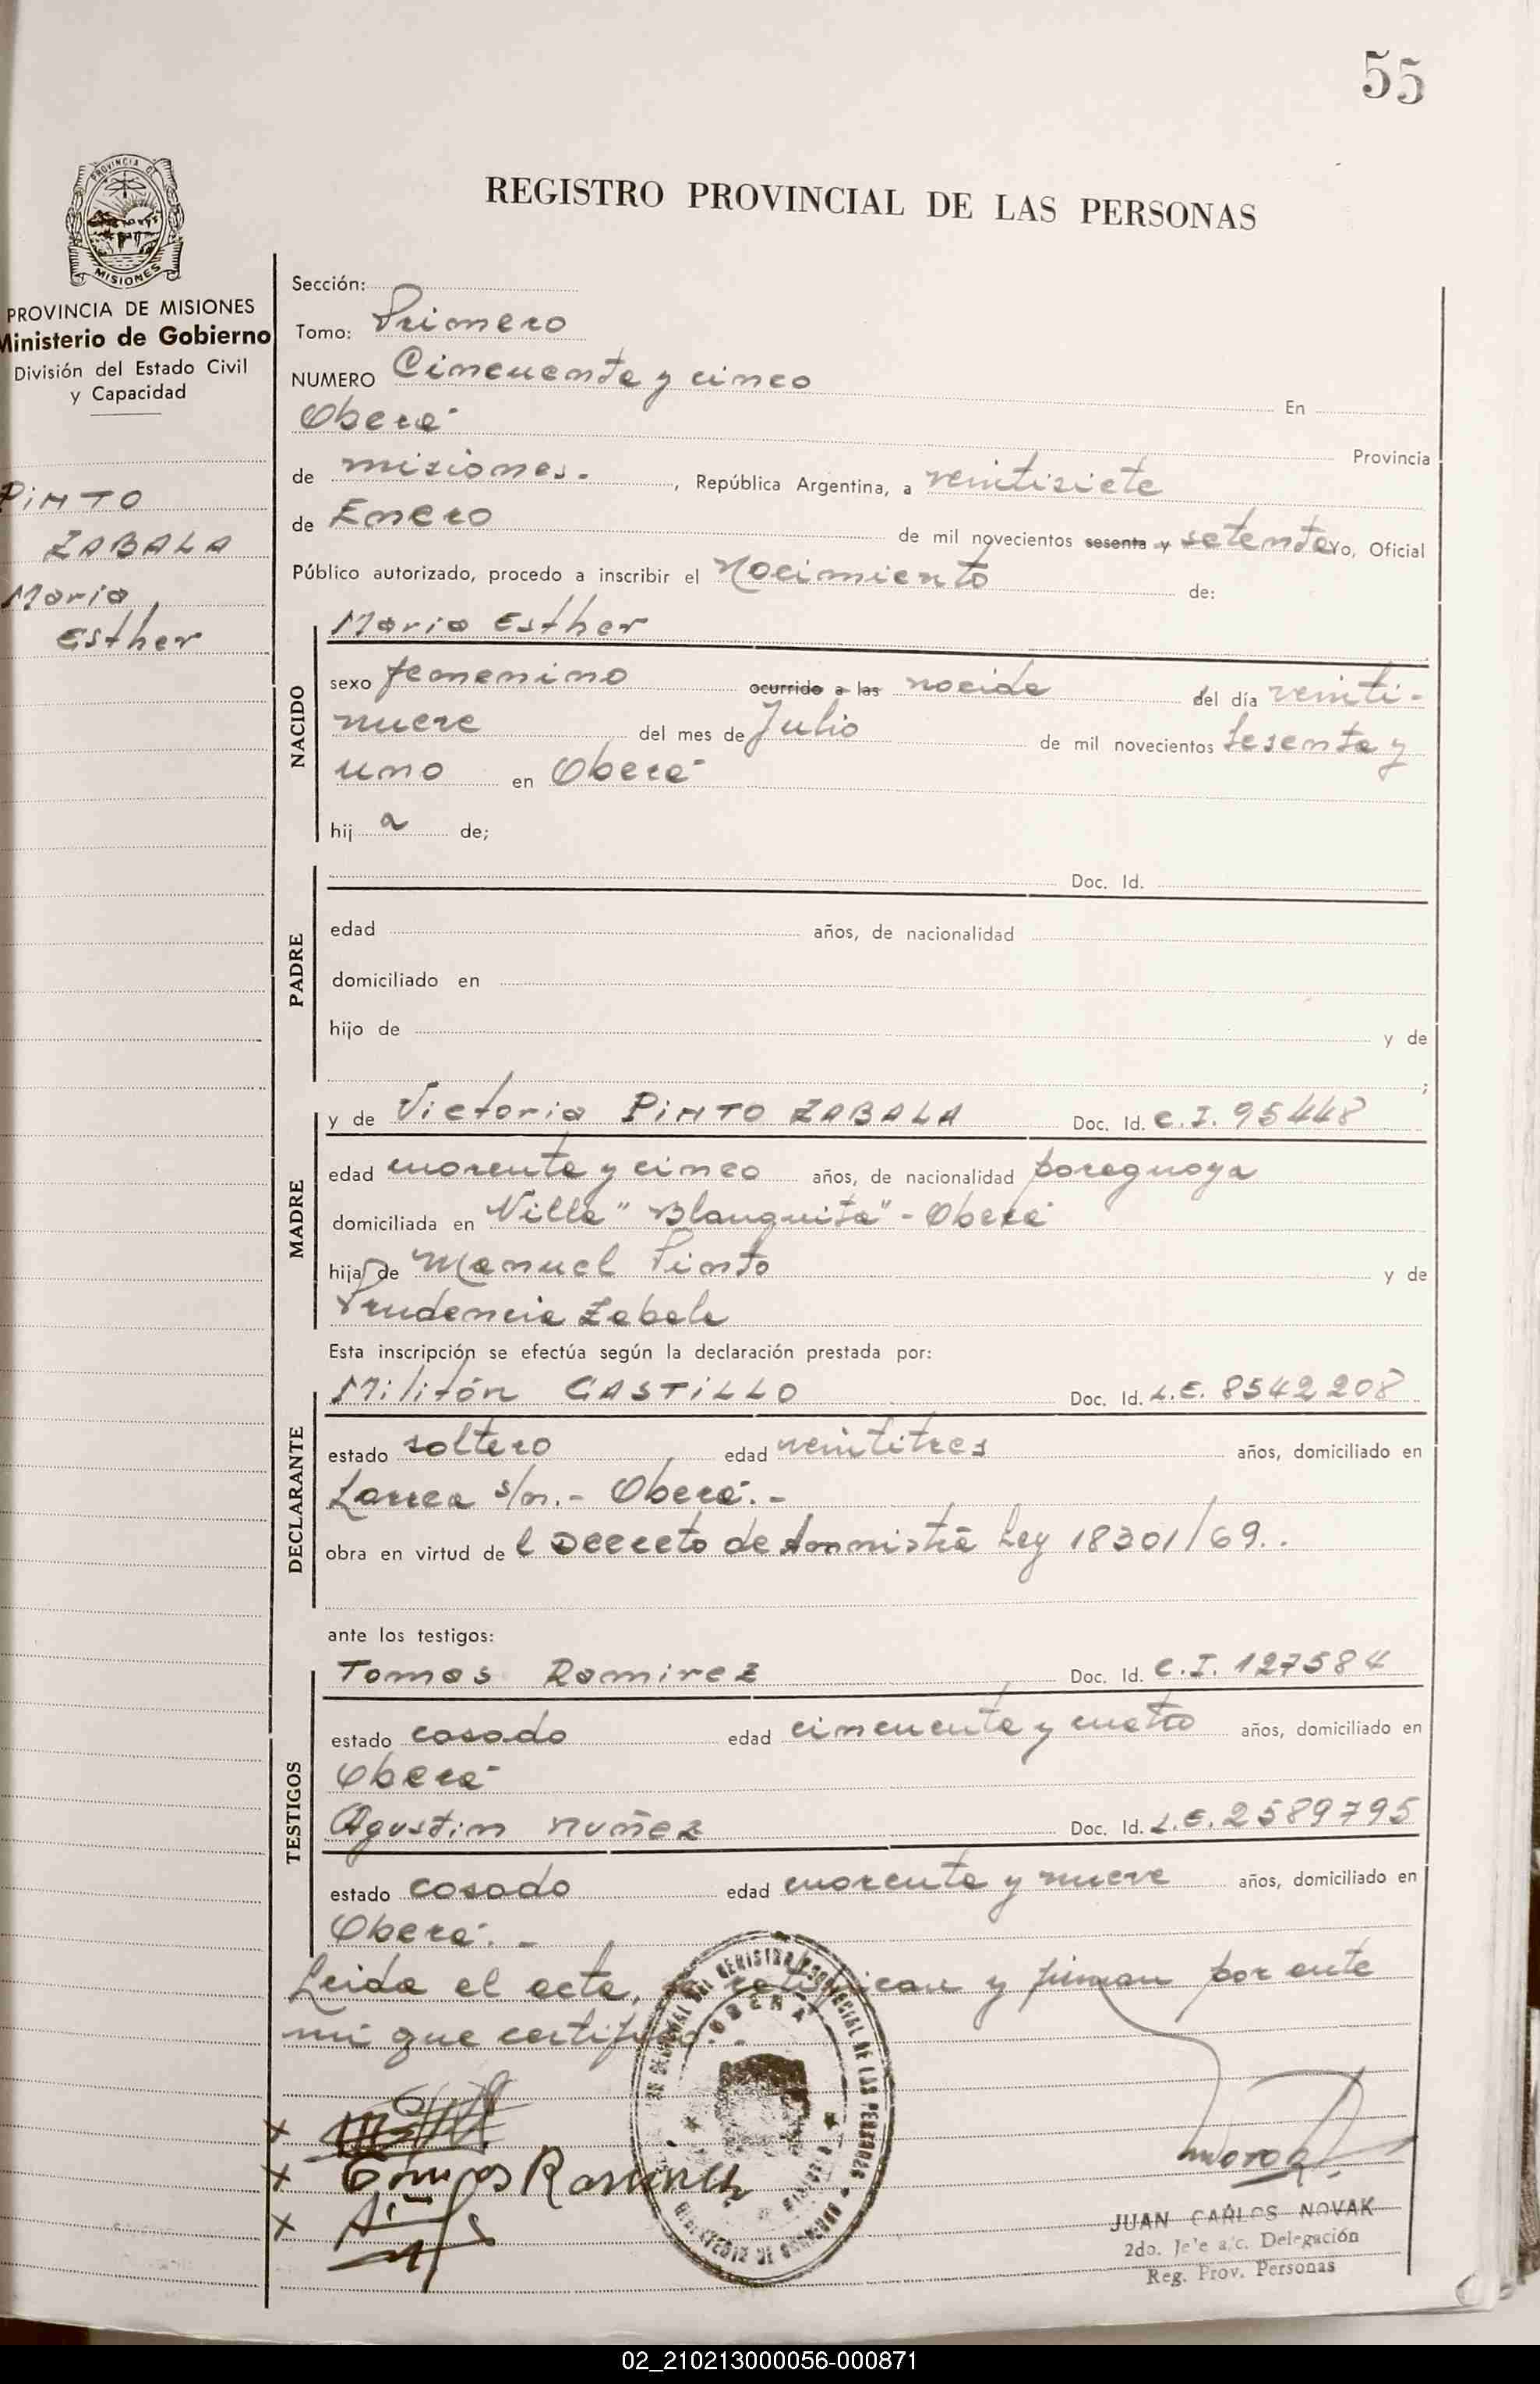 55
PROVINCIA DE
MISIONES
REGISTRO PROVINCIAL DE LAS PERSONAS
PROVINCIA DE MISIONES
Ministerio de Gobierno
División del Estado Civil
y Capacidad
PINTO
ZABALA
Maria
Esther
Sección:
Tomo: Primero
NUMERO Cincuenta y cinco En
Oberá Provincia
de misiones.-, República Argentina, a veintisiete
de Enero de mil novecientos sesenta y setenta Yo, Oficial
Público autorizado, procedo a inscribir el Nacimiento de:
NACIDO
Maria Esther
sexo femenino ocurrido a las nacida del día veinti-
nueve del mes de Julio de mil novecientos sesenta y
uno en Oberá
hij a de;
PADRE
Doc. Id.
edad años, de nacionalidad
domiciliado en
hijo de y de
;
MADRE
y de Victoria PINTO ZABALA Doc. Id. C.I. 95448
edad cuarenta y cinco años, de nacionalidad paraguaya
domiciliada en Villa "Blanquita" - Oberá
hija de Manuel Pinto y de
Prudencia Zabala
Esta inscripción se efectúa según la declaración prestada por:
DECLARANTE
Militón CASTILLO Doc. Id. L.E. 8542208
estado soltero edad veintitres años, domiciliado en
Larrea s/n.- Oberá.-
obra en virtud de l Decreto de Amnistía Ley 18301/69..
ante los testigos:
TESTIGOS
Tomas Ramirez Doc. Id. C.I. 127584
estado casado edad cincuenta y cuatro años, domiciliado en
Oberá
Agustin nuñez Doc. Id. L.E. 2589795
estado casado edad cuarenta y nueve años, domiciliado en
Oberá.-
Leida el acta, la ratifican y firman por ante
mi que certifico.-
OBERA
x
x Tomas Ramirez
x
JUAN CARLOS NOVAK
2do. Jefe a/c. Delegación
Reg. Prov. Personas
02_210213000056-000871